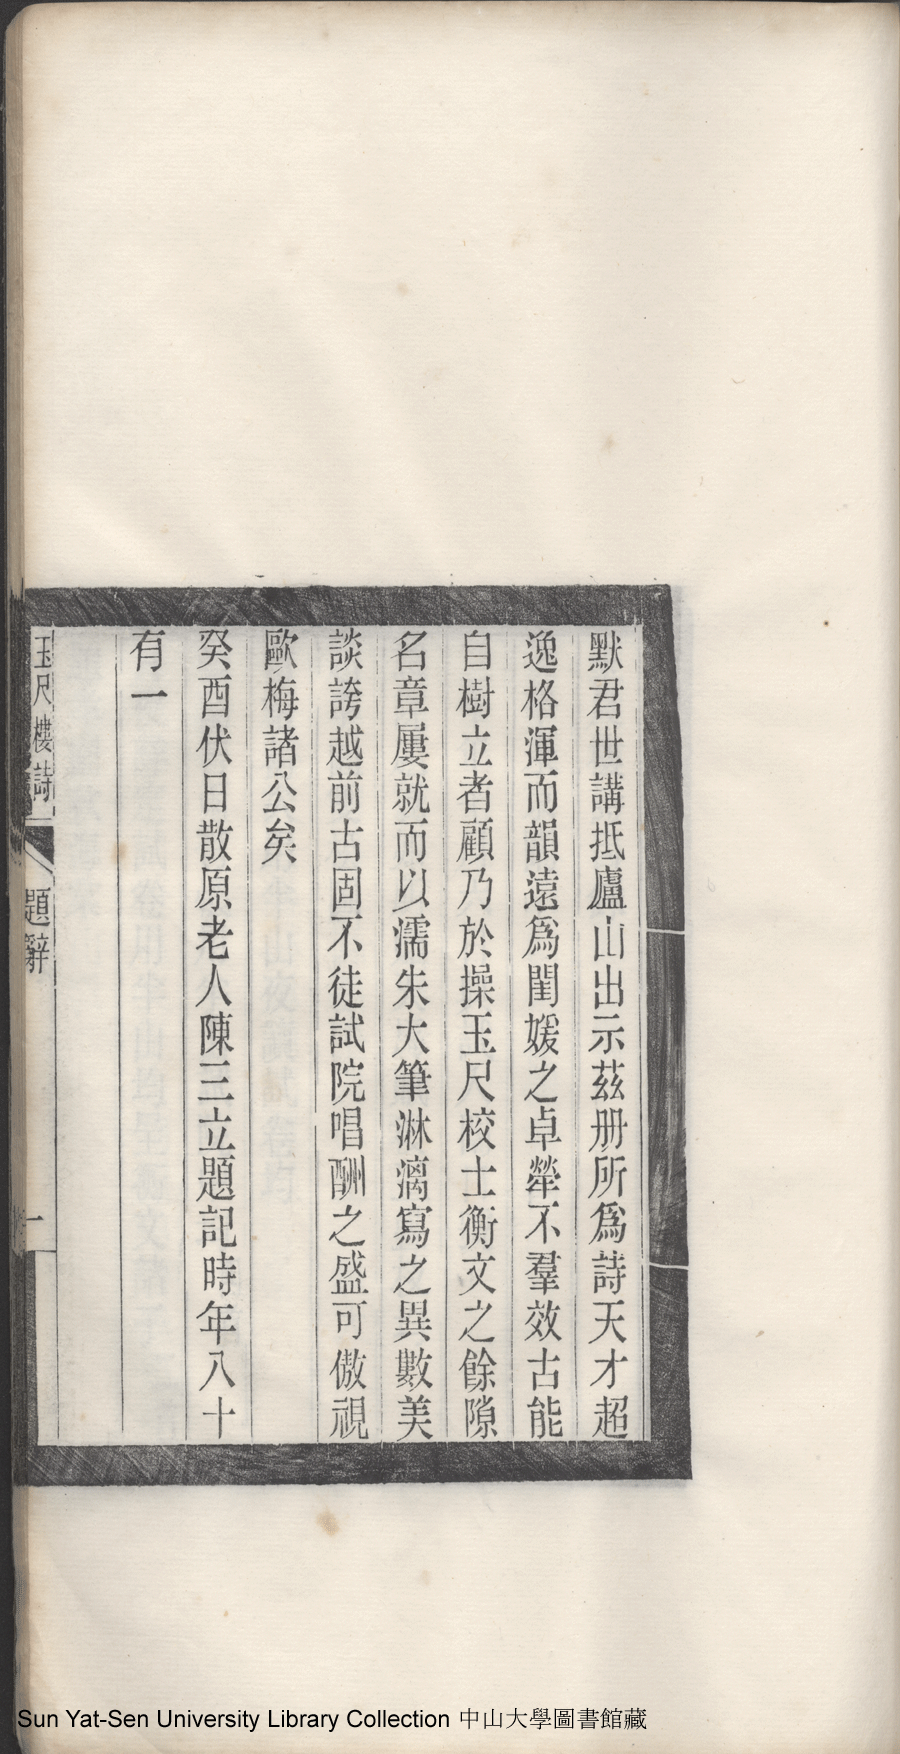 默君世講抵廬山出示茲册所爲詩天才超
逸格渾而韻遠爲閨媛之卓犖不羣效古能
自樹立者顧乃於操玉尺校士衡文之餘隙
名章屢就而以濡朱大筆淋漓寫之異數美
談誇越前古固不徒試院唱酬之盛可傲視
歐梅諸公矣
癸酉伏日散原老人陳三立題記時年八十
有一
玉尺樓詩
題辭
一
Sun Yat-Sen University Library Collection 中山大學圖書館藏